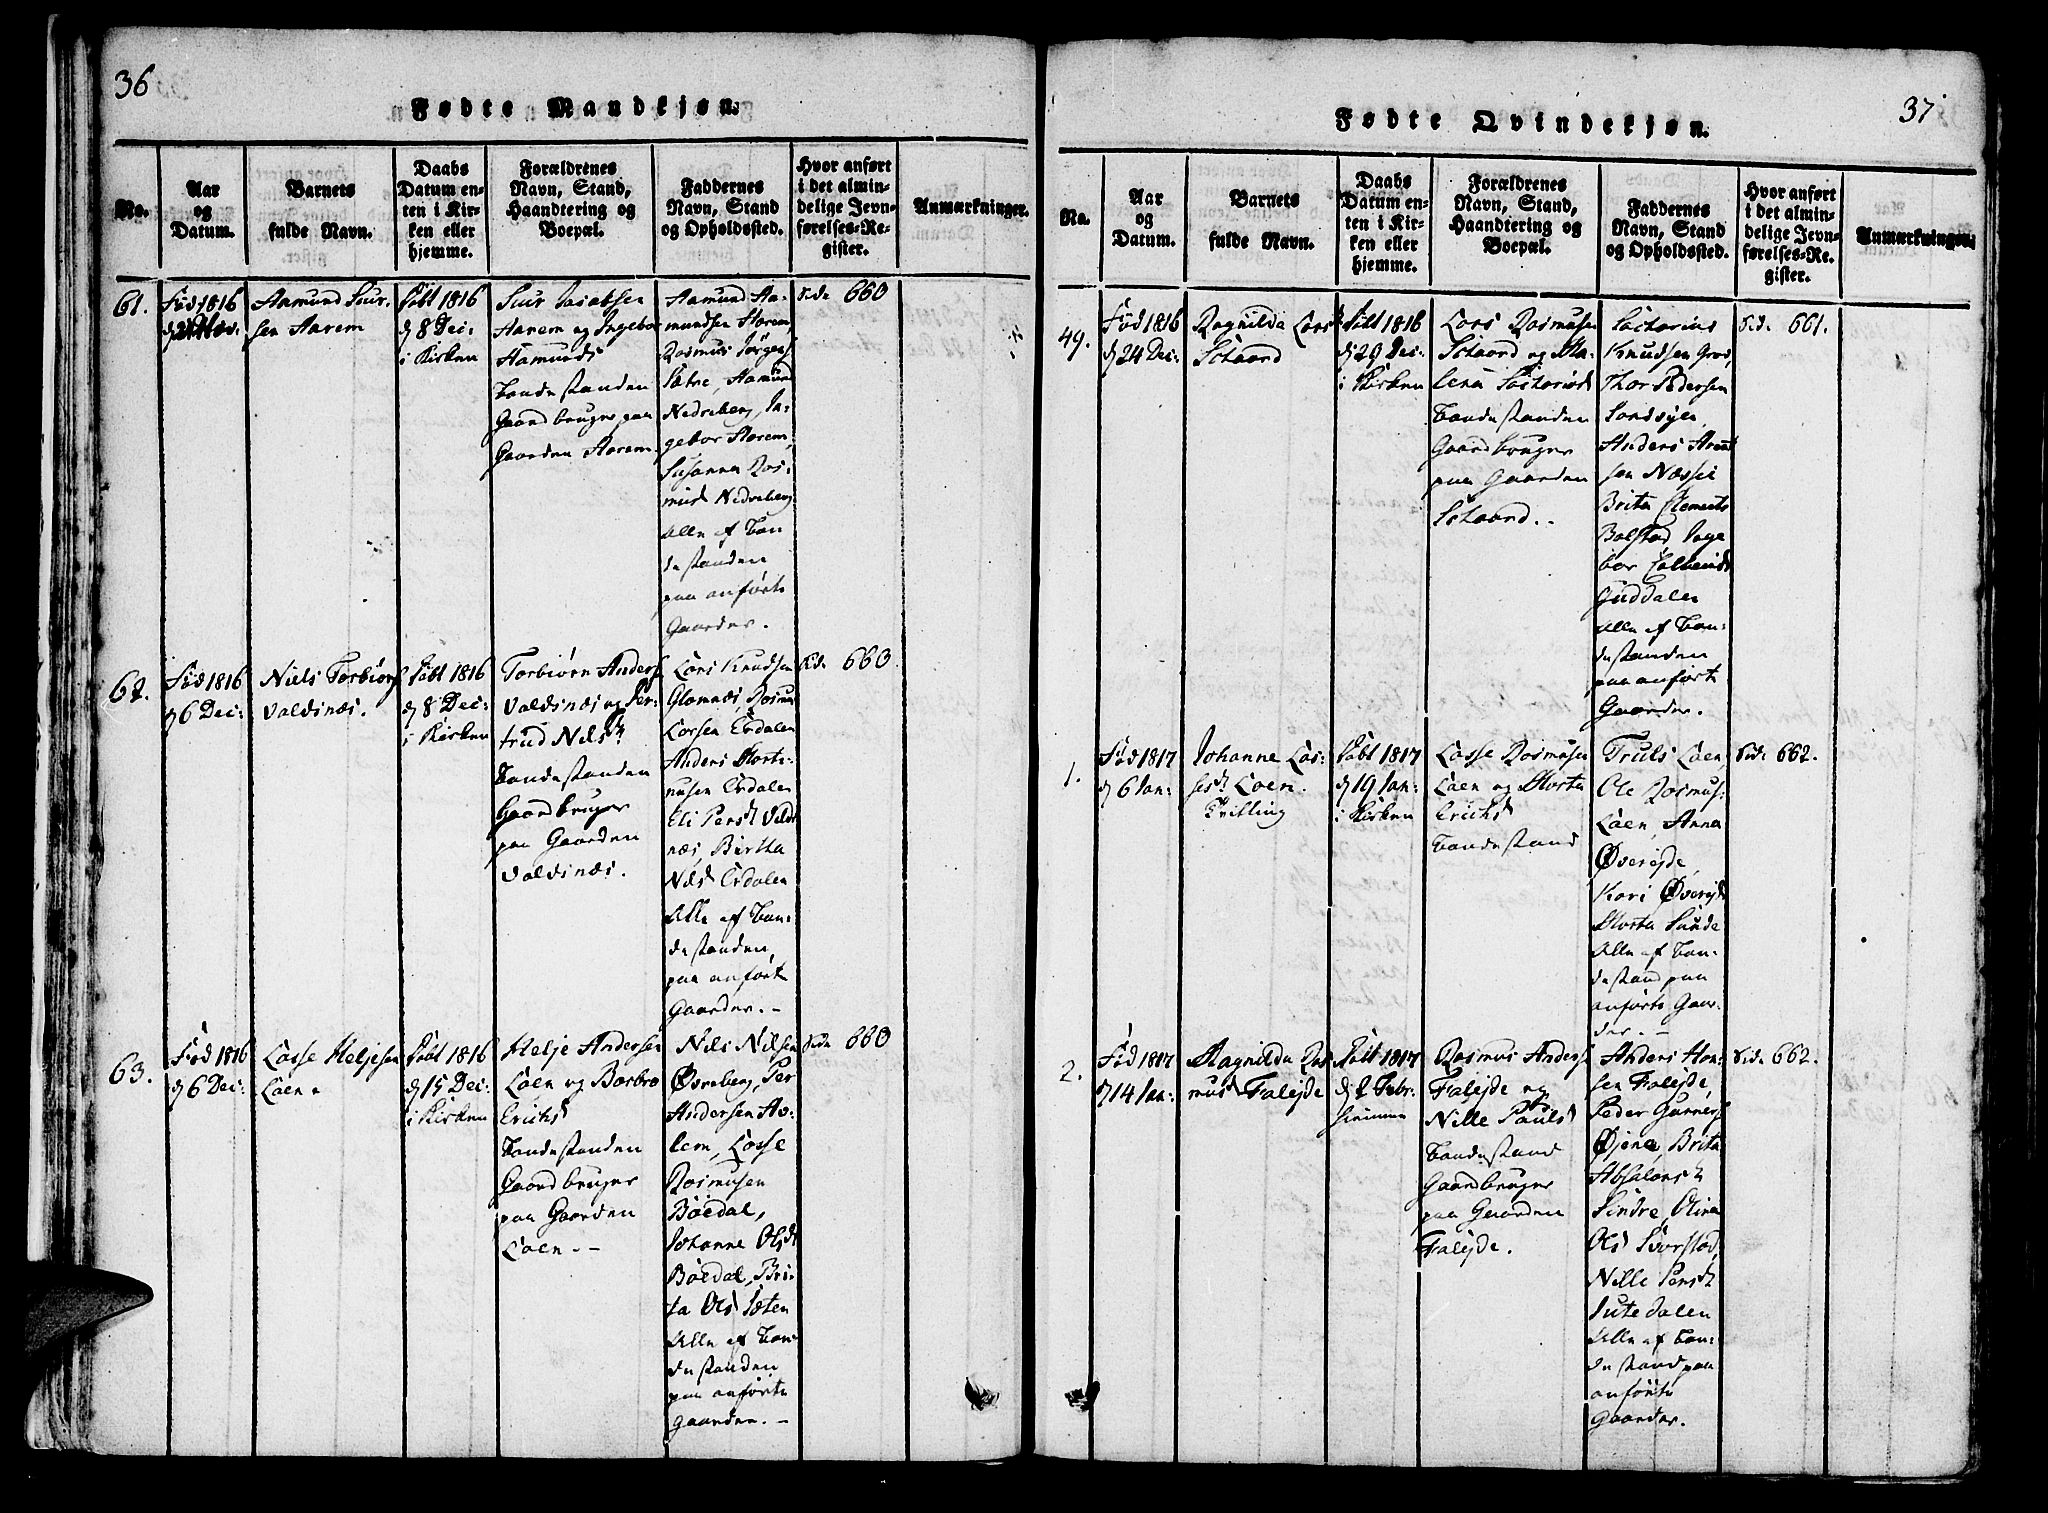 36
Fødte Mandkjøn.
No.
Aar
og
Datum.
Barnets
fulde Navn.
Daabs
Datum en-
ten i Kir-
ken eller
hjemme.
Forældrenes
Navn, Stand,
Haandtering og
Boepæl.
Faddernes
Navn, Stand
og Opholdssted.
Hvor anført
i det almin-
delige Jevn-
førelses-Re-
gister.
Anmærkninger.
61.
Fød 1816
Aamund Siur-
sen Aarem
Døbt 1816
d 8 Dec:
i Kirken
Siur Jacobsen
Aarem og Ingebor
Aamundsd
Bondestanden
Gaardbruger paa
Gaarden Aarem
Aamund Aa-
mundsen Aarem,
Rasmus Jørgens
Sætre, Aamund
Nedreberg, In-
gebor Aarem,
Susanna Ras-
musd Nedreberg
Alle af Bon
destanden
paa anførte
Gaarder.
Side 660
62.
Fød 1816
d 6 Dec:
Niels Torbiørs
Valdsnæs.
Døbt 1816
d 8 Dec:
i Kirken
Torbiørn Anders
Valdsnæs og Jer-
trud Nilsd
Bondestanden
Gaardbruger
paa Gaarden
Valdsnæs.
Lars Knudsen
Glomnæs, Rasmus
Larsen Erdalen
Anders Morte-
nusen Erdalen
Eli Persd Valds
næs, Birtha
Nilsd Erdalen
Alle af Bon-
destanden
paa anførte
Gaarder. -
Side 660
63.
Fød 1816
d 6 Dec:
Lasse Heljesen
Loen.
Døbt 1816
d 15 Dec:
i Kirken
Helje Andersen
Loen og Barbro
Erichsd
Bondestanden
Gaardbruger
paa Gaarden
Loen. -
Nils Nilsen
Øvreberg, Per
Andersen Av-
lem, Lasse
Rasmusen
Bødal,
Johanne Olsd
Bødal, Bri-
ta Olsd Sæten
Alle af Bon-
destanden
paa anførte
gaarder. -
Side 660
37
Fødte Qvindekjøn.
No.
Aar
og
Datum.
Barnets
fulde Navn.
Daabs
Datum en-
ten i Kir-
ken eller
hjemme.
Forældrenes
Navn, Stand,
Haandtering og
Boepæl.
Faddernes
Navn, Stand
og Opholdssted.
Hvor anført
i det almin-
delige Jevn-
førelses-Re-
gister.
Anmærkninger.
49.
Fød 1816
d 24 Dec:
Ragnilda Larsd
Sætaard
Døbt 1816
d 29 Dec:
i Kirken
Lars Rasmusen
Sætaard og Ma-
lena Sactoriusd
Bondestanden
Gaardbruger
paa Gaarden
Sætaard. -
Sactorius
Knudsen Grov,
Thor Pedersen
Anders Arent
sen Næsse
Brita Clements
Bolstad Inge
bor
Guddalen
Alle af Bon-
destanden
paa anførte
Gaarder.
Side 661.
1.
Fød 1817
d 6 Jan:
Johanne Las-
sesd. Loen.
Tvilling
Døbt 1817
d 19 Jan:
i Kirken
Lasse Rasmusen
Loen og Marta
Erichsd
Bondestand
Truls Loen
Ole Rasmus-
Loen, Anna
Øvreejde,
Kari Øvreejde
Marta Sunde
Alle af Bon-
destand paa
anførte Gaar-
der. -
Side 662.
2.
Fød 1817
d 14 Jan:
Magnilda Ras
musd Falejde
Døbt 1817
d 2 Febr:
hjemme
Rasmus Anders
Falejde og
Nille Paulsd
Bondestand
Gaardbruger
paa Gaarden
Falejde.
Anders Han-
sen Falejde,
Peder Gunners
Øjene, Brita
Absalonsd
Sindre, Olina
Olsd Svorstad,
Nille Persd
Jutedalen
Alle af Bon-
destand paa
anførte
gaarder.
Side 662.